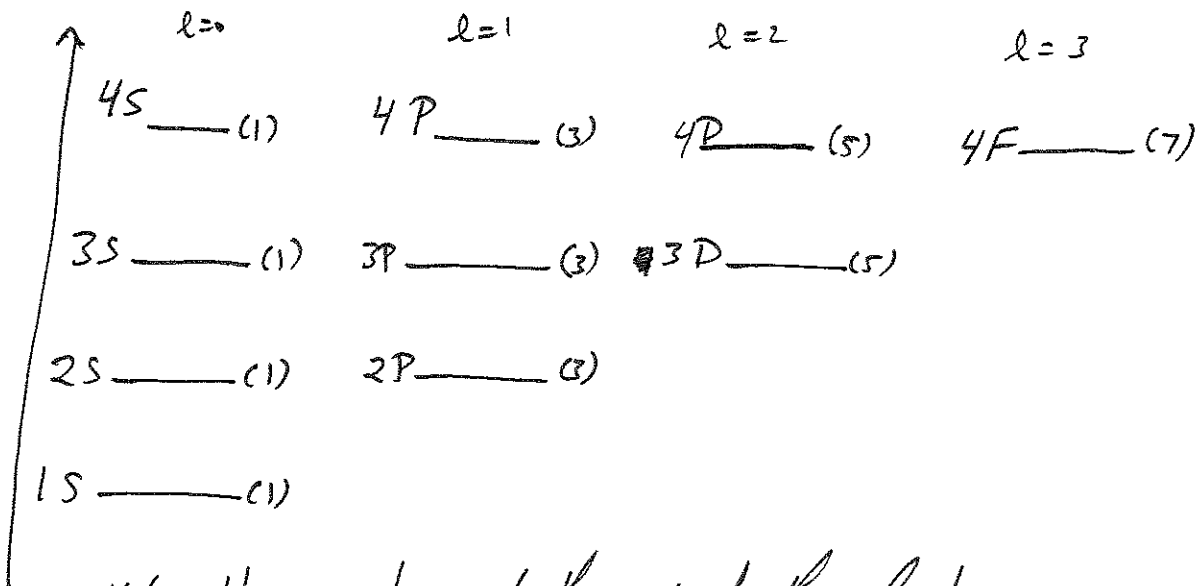 l=0 l=1 l=2 l=3
4S (1) 4P (3) 4D (5) 4F (7)
3S (1) 3P (3) 3D (5)
2S (1) 2P (3)
1S (1)